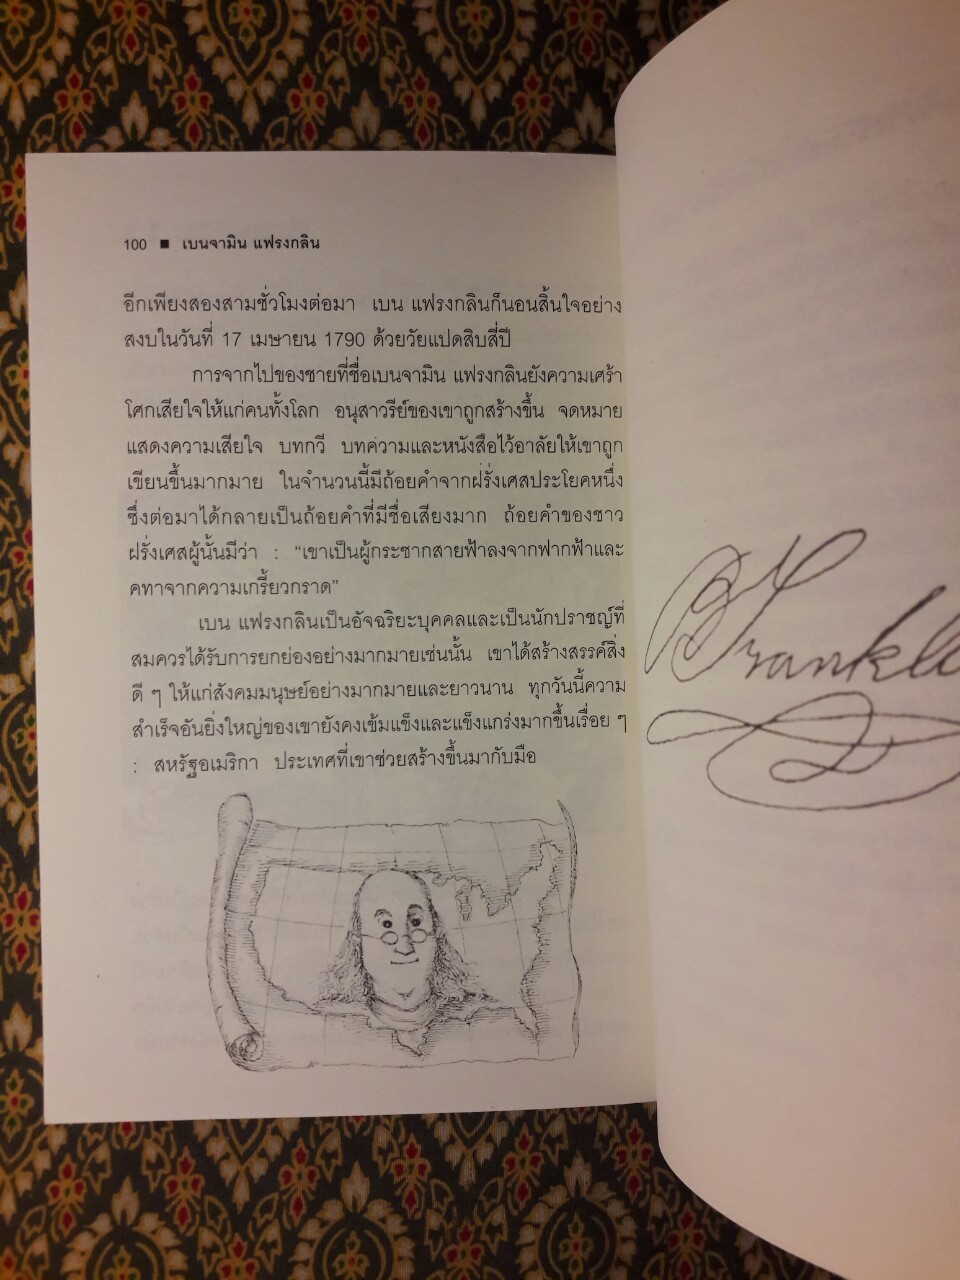 100 ■ เบนจามิน แฟรงกลิน
อีกเพียงสองสามชั่วโมงต่อมา เบน แฟรงกลินก็นอนสิ้นใจอย่าง
สงบในวันที่ 17 เมษายน 1790 ด้วยวัยแปดสิบสี่ปี
การจากไปของชายที่ชื่อเบนจามิน แฟรงกลินยังความเศร้า
โศกเสียใจให้แก่คนทั้งโลก อนุสาวรีย์ของเขาถูกสร้างขึ้น จดหมาย
แสดงความเสียใจ บทกวี บทความและหนังสือไว้อาลัยให้เขาถูก
เขียนขึ้นมากมาย ในจำนวนนี้มีถ้อยคำจากฝรั่งเศสประโยคหนึ่ง
ซึ่งต่อมาได้กลายเป็นถ้อยคำที่มีชื่อเสียงมาก ถ้อยคำของชาว
ฝรั่งเศสผู้นั้นมีว่า : "เขาเป็นผู้กระชากสายฟ้าลงจากฟากฟ้าและ
คทาจากความเกรี้ยวกราด"
เบน แฟรงกลินเป็นอัจฉริยะบุคคลและเป็นนักปราชญ์ที่
สมควรได้รับการยกย่องอย่างมากมายเช่นนั้น เขาได้สร้างสรรค์สิ่ง
ดี ๆ ให้แก่สังคมมนุษย์อย่างมากมายและยาวนาน ทุกวันนี้ความ
สำเร็จอันยิ่งใหญ่ของเขายังคงเข้มแข็งและแข็งแกร่งมากขึ้นเรื่อย ๆ
: สหรัฐอเมริกา ประเทศที่เขาช่วยสร้างขึ้นมากับมือ
B Frankli